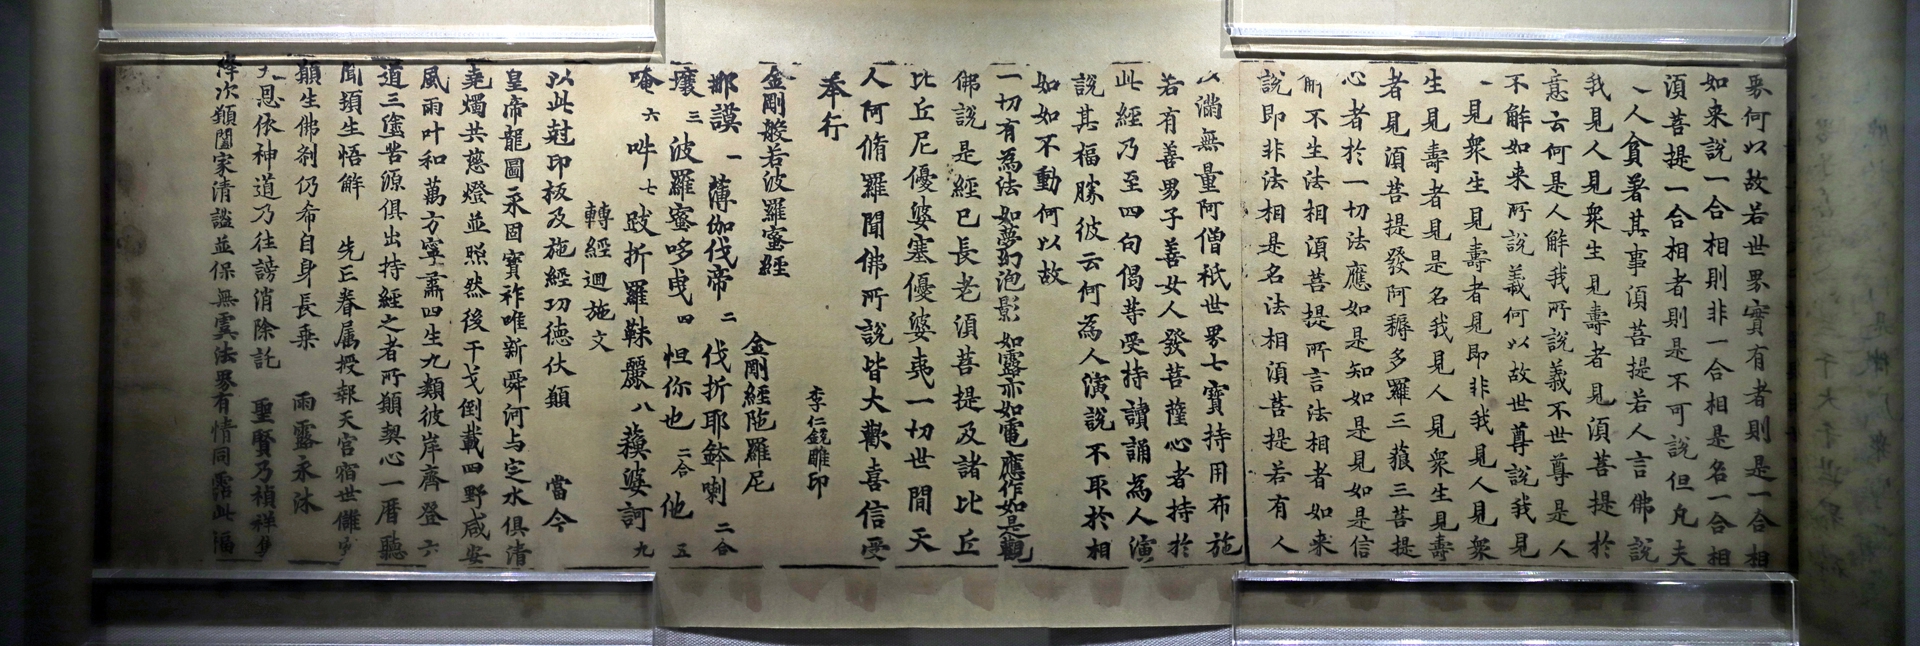 界何以故若世界實有者則是一合相
如来說一合相則非一合相是名一合相
湏菩提一合相者則是不可說但凡夫
之人貪著其事湏菩提若人言佛說
我見人見衆生見壽者見湏菩提於
意云何是人解我所說義不世尊是人
不解如来所說義何以故世尊說我見
人見衆生見壽者見即非我見人見衆
生見壽者見是名我見人見衆生見壽
者見湏菩提發阿耨多羅三藐三菩提
心者於一切法應如是知如是見如是信
解不生法相湏菩提所言法相者如来
說即非法相是名法相湏菩提若有人
以滿無量阿僧祇世界七寶持用布施
若有善男子善女人發菩薩心者持於
此經乃至四句偈等受持讀誦為人演
說其福勝彼云何為人演說不取於相
如如不動何以故
一切有為法如夢幻泡影如露亦如電應作如是觀
佛說是經已長老湏菩提及諸比丘
比丘尼優婆塞優婆夷一切世間天
人阿脩羅聞佛所說皆大歡喜信受
奉行 李仁銳雕印
金剛般若波羅蜜經
金剛經陁羅尼
那謨一薄伽伐帝二伐折耶鉢喇二合
壤三波羅蜜哆曳四怛你也二合他五
唵六吽七跋折羅䩭麗八蘓婆訶九
轉經迴施文
以此尅印板及施經功德伏願 當今
皇帝龍圖永固寶祚唯新舜河与定水俱清
堯燭共慈燈並照然後干戈倒載四野咸安
風雨叶和萬方寧肅四生九類彼岸齊登六
道三塗苦源俱出持經之者所願契心一曆聽
聞頴生悟解 先亡眷属授報天宮宿世讎
願生佛刹仍希自身長乗 雨露永沐
恩依神道乃往謗消除託 聖賢乃禎祥
降次願闔家清謐並保無虞法界有情同霑此福